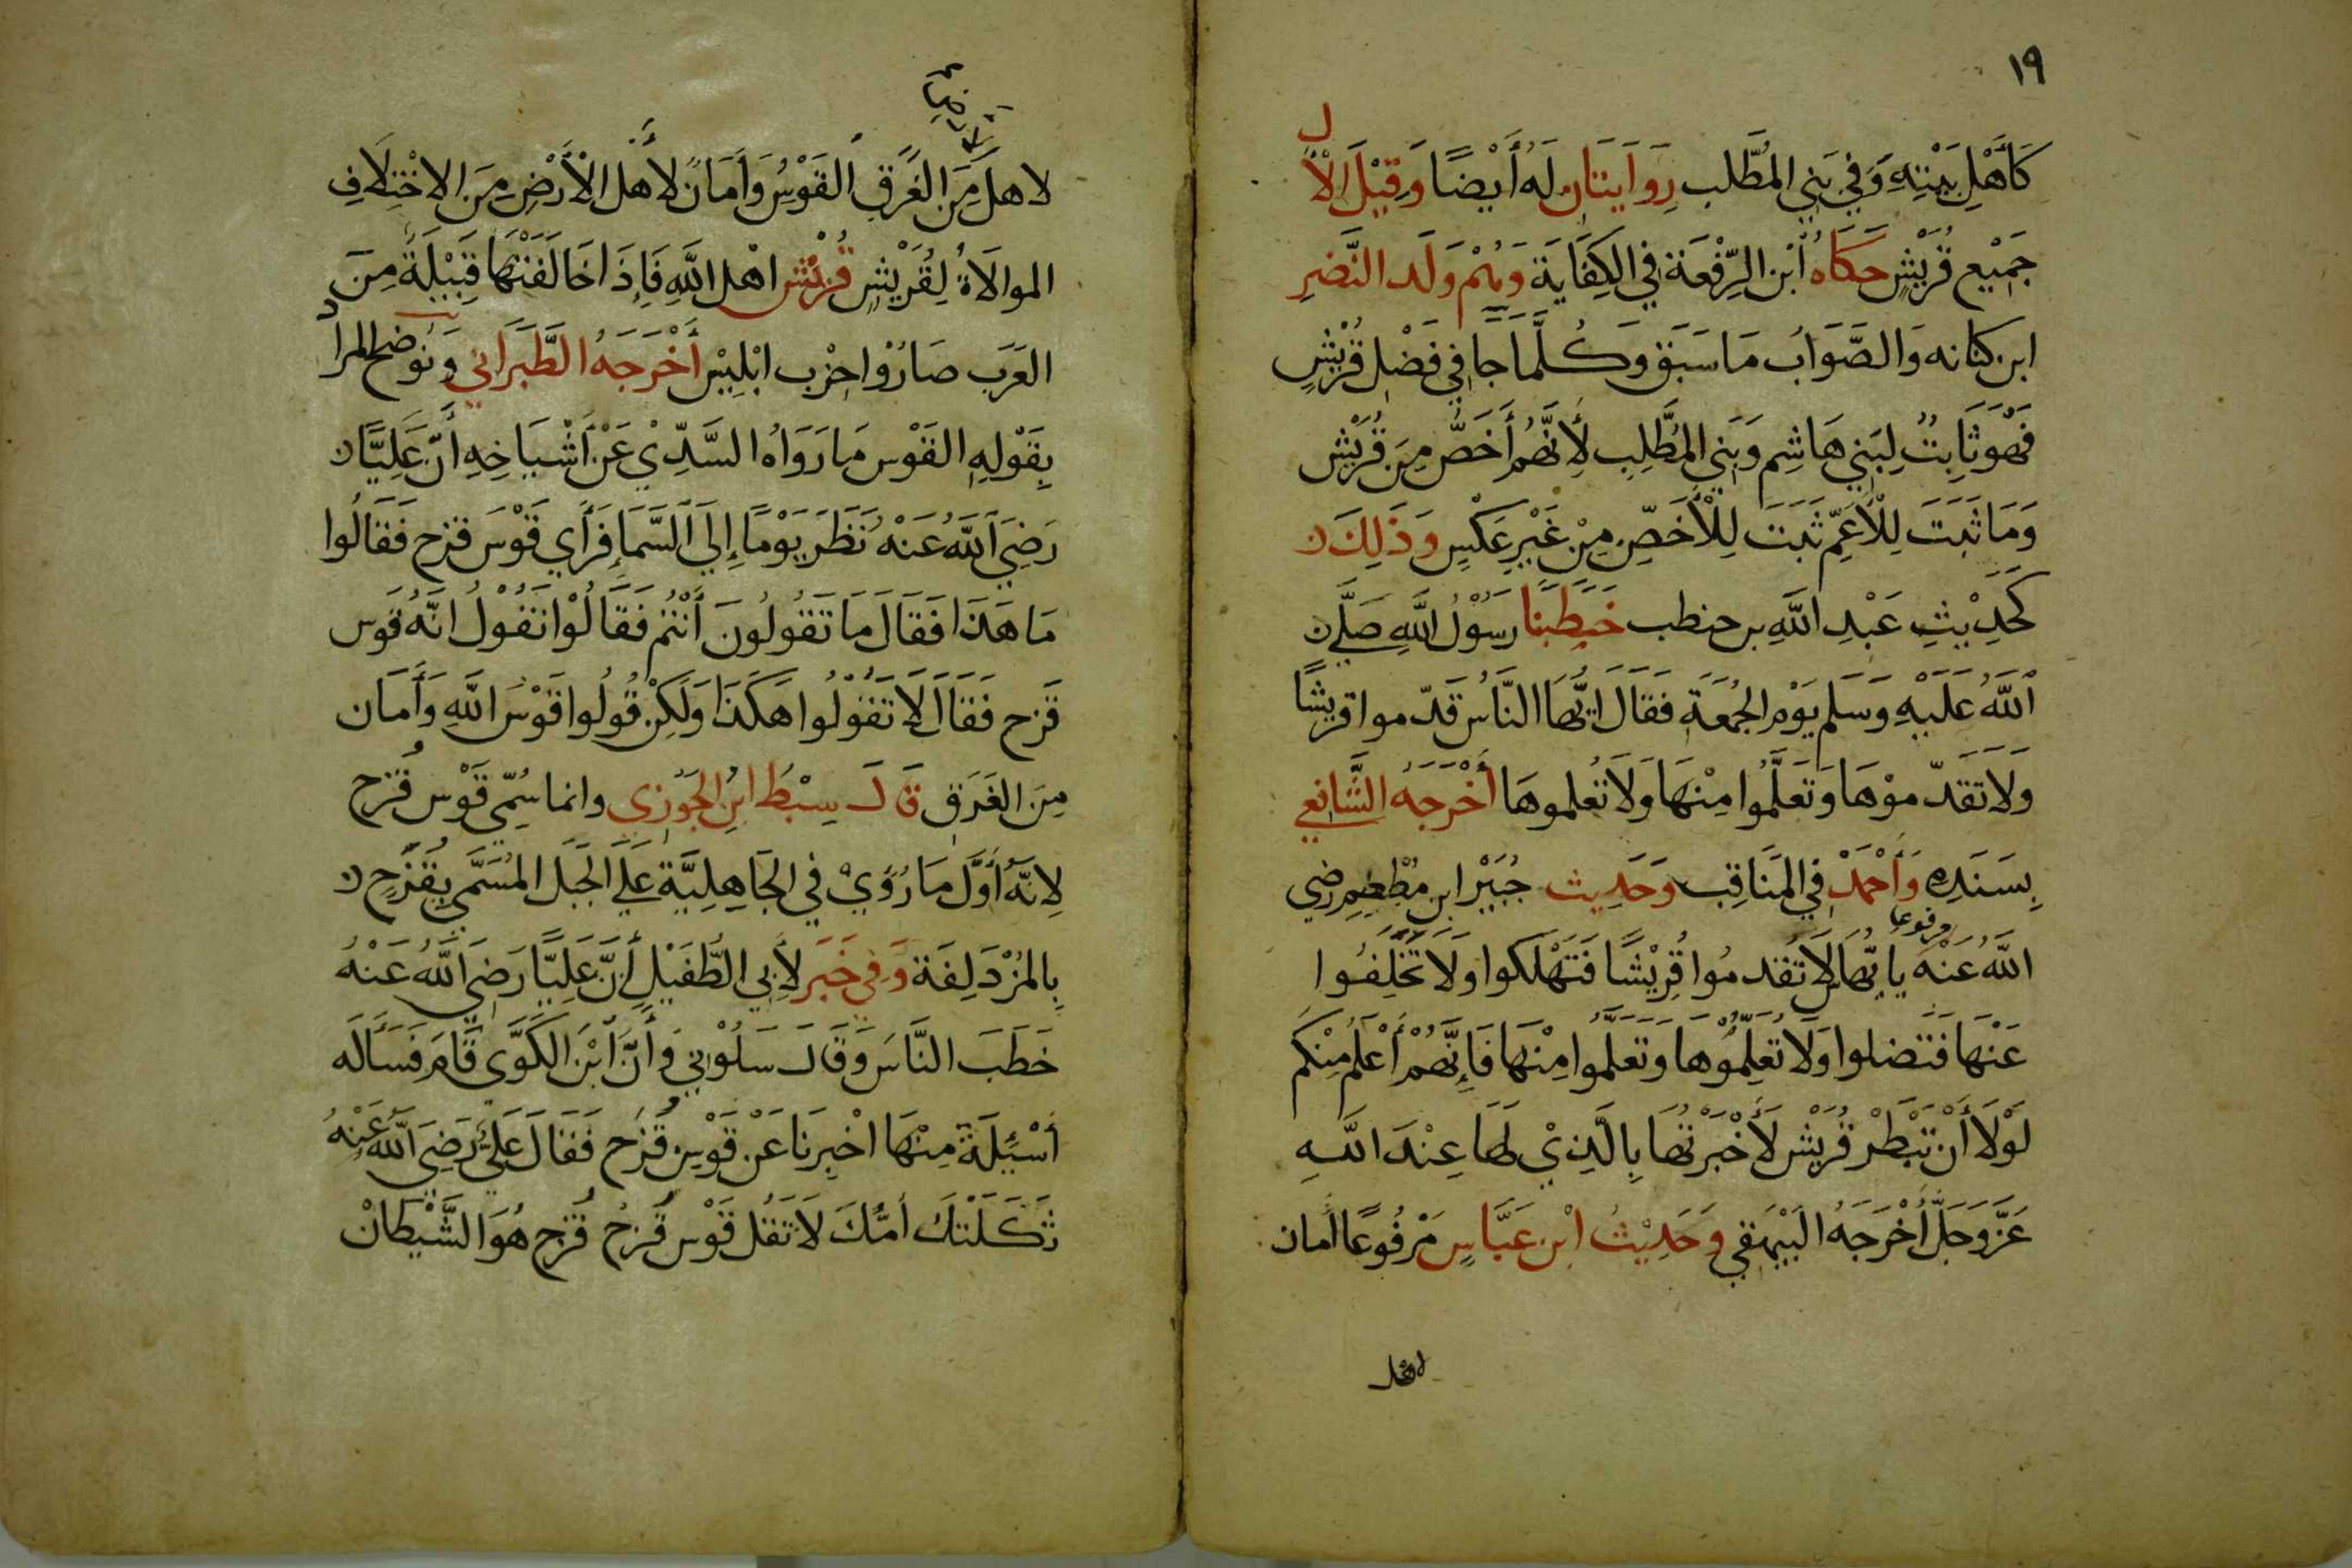 ١٩
كَأَهْلِ بَيْتِهِ وَفِي بَنِي المُطَّلب رِوَايَتَان لَهُ أَيْضًا وَقِيْلَ الْآل
جَمِيْع قُرَيْشٍ حَكَاهُ ابْن الرِّفْعَة فِي الكِفَايَة وَهُمْ وَلَد النَّضِر
ابن كنانه وَالصَّوَابُ مَا سَبَق وَكُلَّمَا جَا فِي فَضْل قُرَيْشٍ
فَهْوَ ثَابِتٌ لِبَنِي هَاشِم وَبَنِي المُطَّلِب لِأَنَّهُم أَخَصُّ مِن قُرَيْش
وَمَا ثَبَتَ لِلْأَعَمِّ ثَبَتَ لِلْأَخَصّ مِنْ غَيْرِ عَكْسٍ وَذَلِكَ
كَحَدِيْثِ عَبْدِ اللَّهِ بن حنطب خَطَبَنَا رَسُوْلُ اللَّهِ صَلَّى
اللَّهُ عَلَيْهِ وَسَلم يَوْم الجُمْعَةِ فَقَالَ ايُّهَا النَّاسُ قَدّموا قريشًا
وَلَا تَقَدّموْهَا وَتَعَلَّمُوا مِنْهَا وَلَا تُعلموهَا أَخْرَجَهُ الشَّافِعي
بِسَنَدِهِ وَأَحْمَدْ فِي المَنَاقِب وَحَدِيث جُبَيْر ابن مُطْعِم رضي
اللَّهُ عَنْهُ مرفوعا يا ايُّهَا النَّاس لَا تُقَدمُوا قُرَيْشًا فَتَهْلَكوا وَلَا تَخَلَّفُوا
عَنْهَا فَتَضلوا وَلَا تُعَلِّمُوْها وَتَعَلَّمُوا مِنْهَا فَإِنَّهُمْ أَعْلَمُ مِنْكم
لَوْلَا أَنْ تَبْطَرْ قُرَيْش لَأَخْبَرْتُهَا بِالَّذِيْ لَهَا عِنْدَ اللَّهِ
عَزَّ وَجَلَّ أَخْرَجَهُ البَيْهَقي وَحَدِيْثُ ابْن عَبَّاسٍ مَرْفُوعًا أمان
لاهل
لاهل مِنَ الغَرَقِ القَوْسُ وَأَمَانٌ لأَهل الْأَرْضِ مِنَ الاخْتِلَافِ
الموالَاةُ لِقُرَيْشٍ قُرَيْش اهْل اللَّهِ فَإِذَا خَالَفَتْهَا قَبِيْلَةٌ مِنَ
العَرَب صَارُوْا حِزْب ابْلِيْس أَخْرَجَهُ الطَّبَرَاني وَتُوَضح المراد
بِقَوْلِهِ القَوْس مَا رَوَاهُ السَّدِّيْ عَنْ أَشْيَاخِهِ أَنَّ عَلِيًّا
رَضِيَ اللَّهُ عَنْهُ نَظَرَ يَوْمًا إِلَى السَّمَا فَرَأَي قَوْسَ قزح فَقَالُوا
مَا هَذَا فَقَالَ مَا تَقُولُونَ أَنْتُم فَقَالُوْا نَقُوْلُ انَّهُ قَوس
قَزح فَقَالَ لَا تَقُوْلُوا هَكَذَا وَلَكِنْ قُولُوا قَوْسَ اللَّهِ وَأَمَان
مِنَ الغَرَق قَالَ سِبْطُ ابن الجَوْزي وانما سُمِّي قَوْس قُزح
لِانَّهُ أَوَّل مَا رُؤيْ فِي الجَاهِلِيَّة عَلَى الجَبَل المُسَمَّى بِقُزَحٍ
بِالمُزْدَلِفَة وَفِي خَبَر لأَبِي الطُّفَيْلِ أَنَّ عَلِيًّا رَضِيَ اللَّهُ عَنْهُ
خَطَبَ النَّاسَ وَقَالَ سَلُوْنِي وَأَنَّ ابْنَ الكَوَّى قَامَ فَسَأَلَه
أَسْئِلَةً مِنْهَا اخْبِرنَا عَنْ قَوْسِ قُزَح فَقَالَ عَلِيُّ رَضِيَ اللَّهُ عَنْهُ
ثَكَلَتْكَ أُمُّكَ لَا تَقُل قَوْس قُزحُ قُزح هُوَ الشَّيْطَانْ